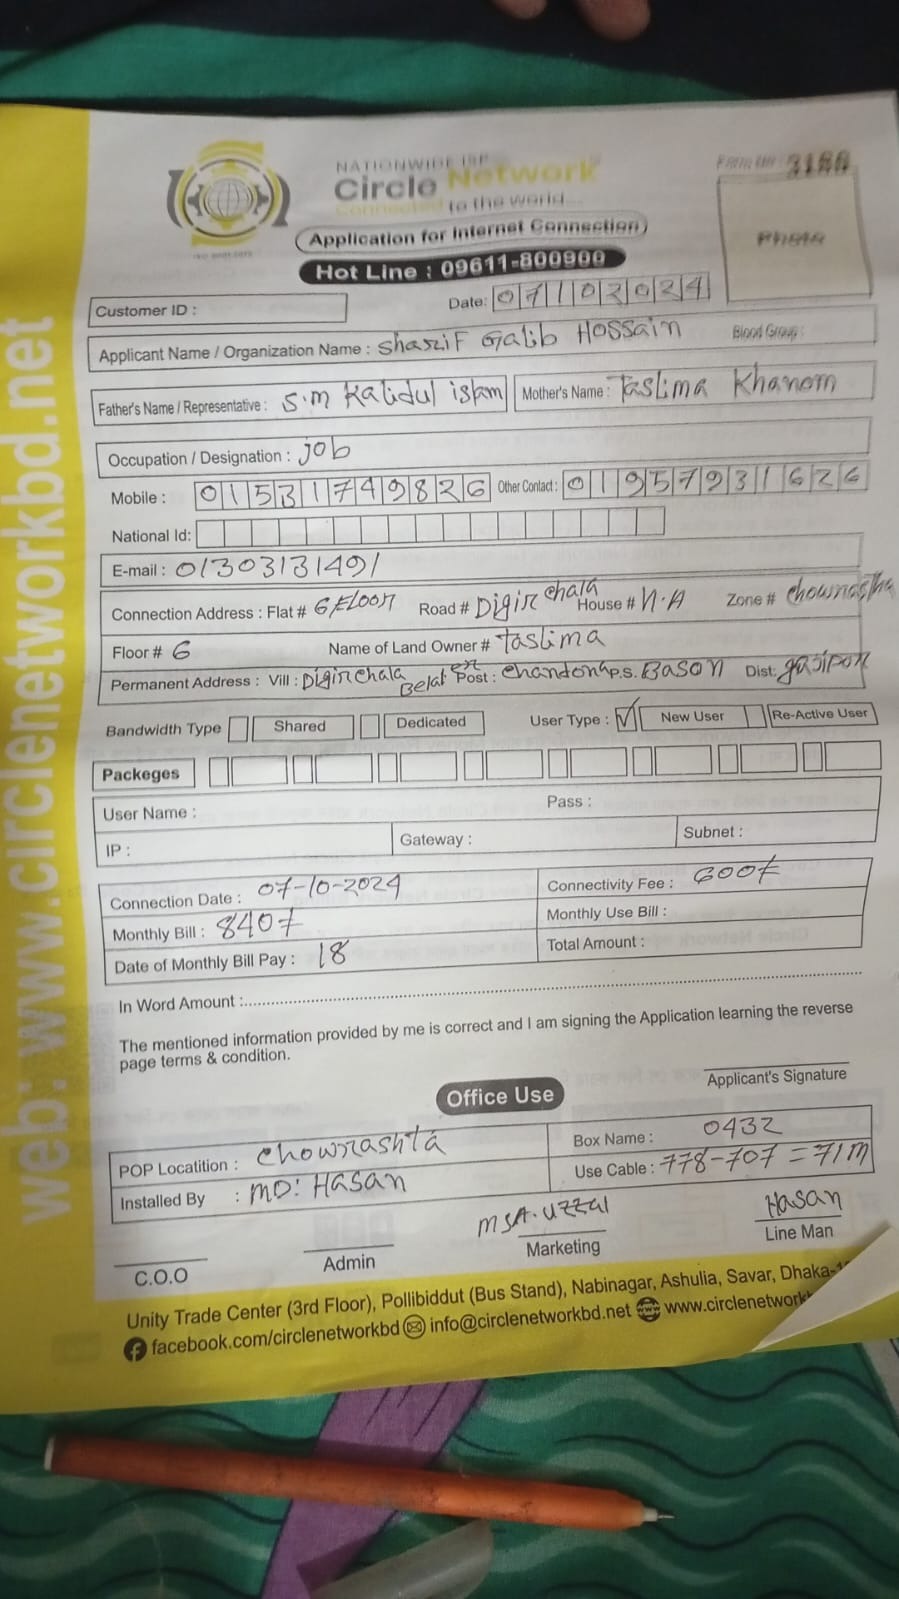 NATIONWIDE ISP
Circle Network
Connected to the world....
Form No: 3188
Photo
Application for Internet Connection
Hot Line : 09611-800900
Customer ID :
Date: 07102024
Applicant Name / Organization Name : Sharif Galib Hossain Blood Group :
Father's Name / Representative : S.M Kalidul islam Mother's Name : Taslima Khanom
Occupation / Designation : job
Mobile : 01531749826 Other Contact : 01957931626
National Id:
E-mail : 01303131491
Connection Address : Flat # 6 FLOOR Road # Digir chala House # N.A Zone # chowrastha
Floor # 6 Name of Land Owner # Taslima
Permanent Address : Vill : Digir chala Post : Chandona P.S. BASON Dist: gazipor
Bandwidth Type Shared Dedicated User Type : ✓ New User Re-Active User
Packeges
User Name : Pass :
IP : Gateway : Subnet :
Connection Date : 07-10-2024 Connectivity Fee : 600৳
Monthly Bill : 840৳ Monthly Use Bill :
Date of Monthly Bill Pay : 18 Total Amount :
In Word Amount :
The mentioned information provided by me is correct and I am signing the Application learning the reverse
page terms & condition.
Applicant's Signature
Office Use
POP Locatition : Chowrashta Box Name : 0432
Installed By : MD: Hasan Use Cable : 778-707 = 71m
MSA.UZZAl Hasan
C.O.O Admin Marketing Line Man
Unity Trade Center (3rd Floor), Pollibiddut (Bus Stand), Nabinagar, Ashulia, Savar, Dhaka-
facebook.com/circlenetworkbd info@circlenetworkbd.net www.circlenetwork
web: www.circlenetworkbd.net